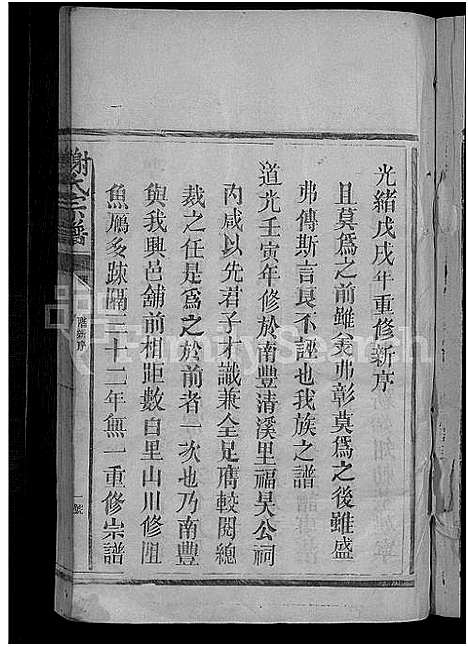 光緒戊戌年重修新序
且莫爲之前雖美弗彰莫爲之後雖盛
弗傳斯言良不誣也我族之譜
道光壬寅年修於南豐清溪里福昊公祠
內咸以先君子才識兼全足膺較閱總
裁之任是爲之於前者一次也乃南豐
與我興邑舖前相距數百里山川修阻
魚鴈多踈隔三十二年無一重修宗譜
謝氏宗譜
FamilySearch